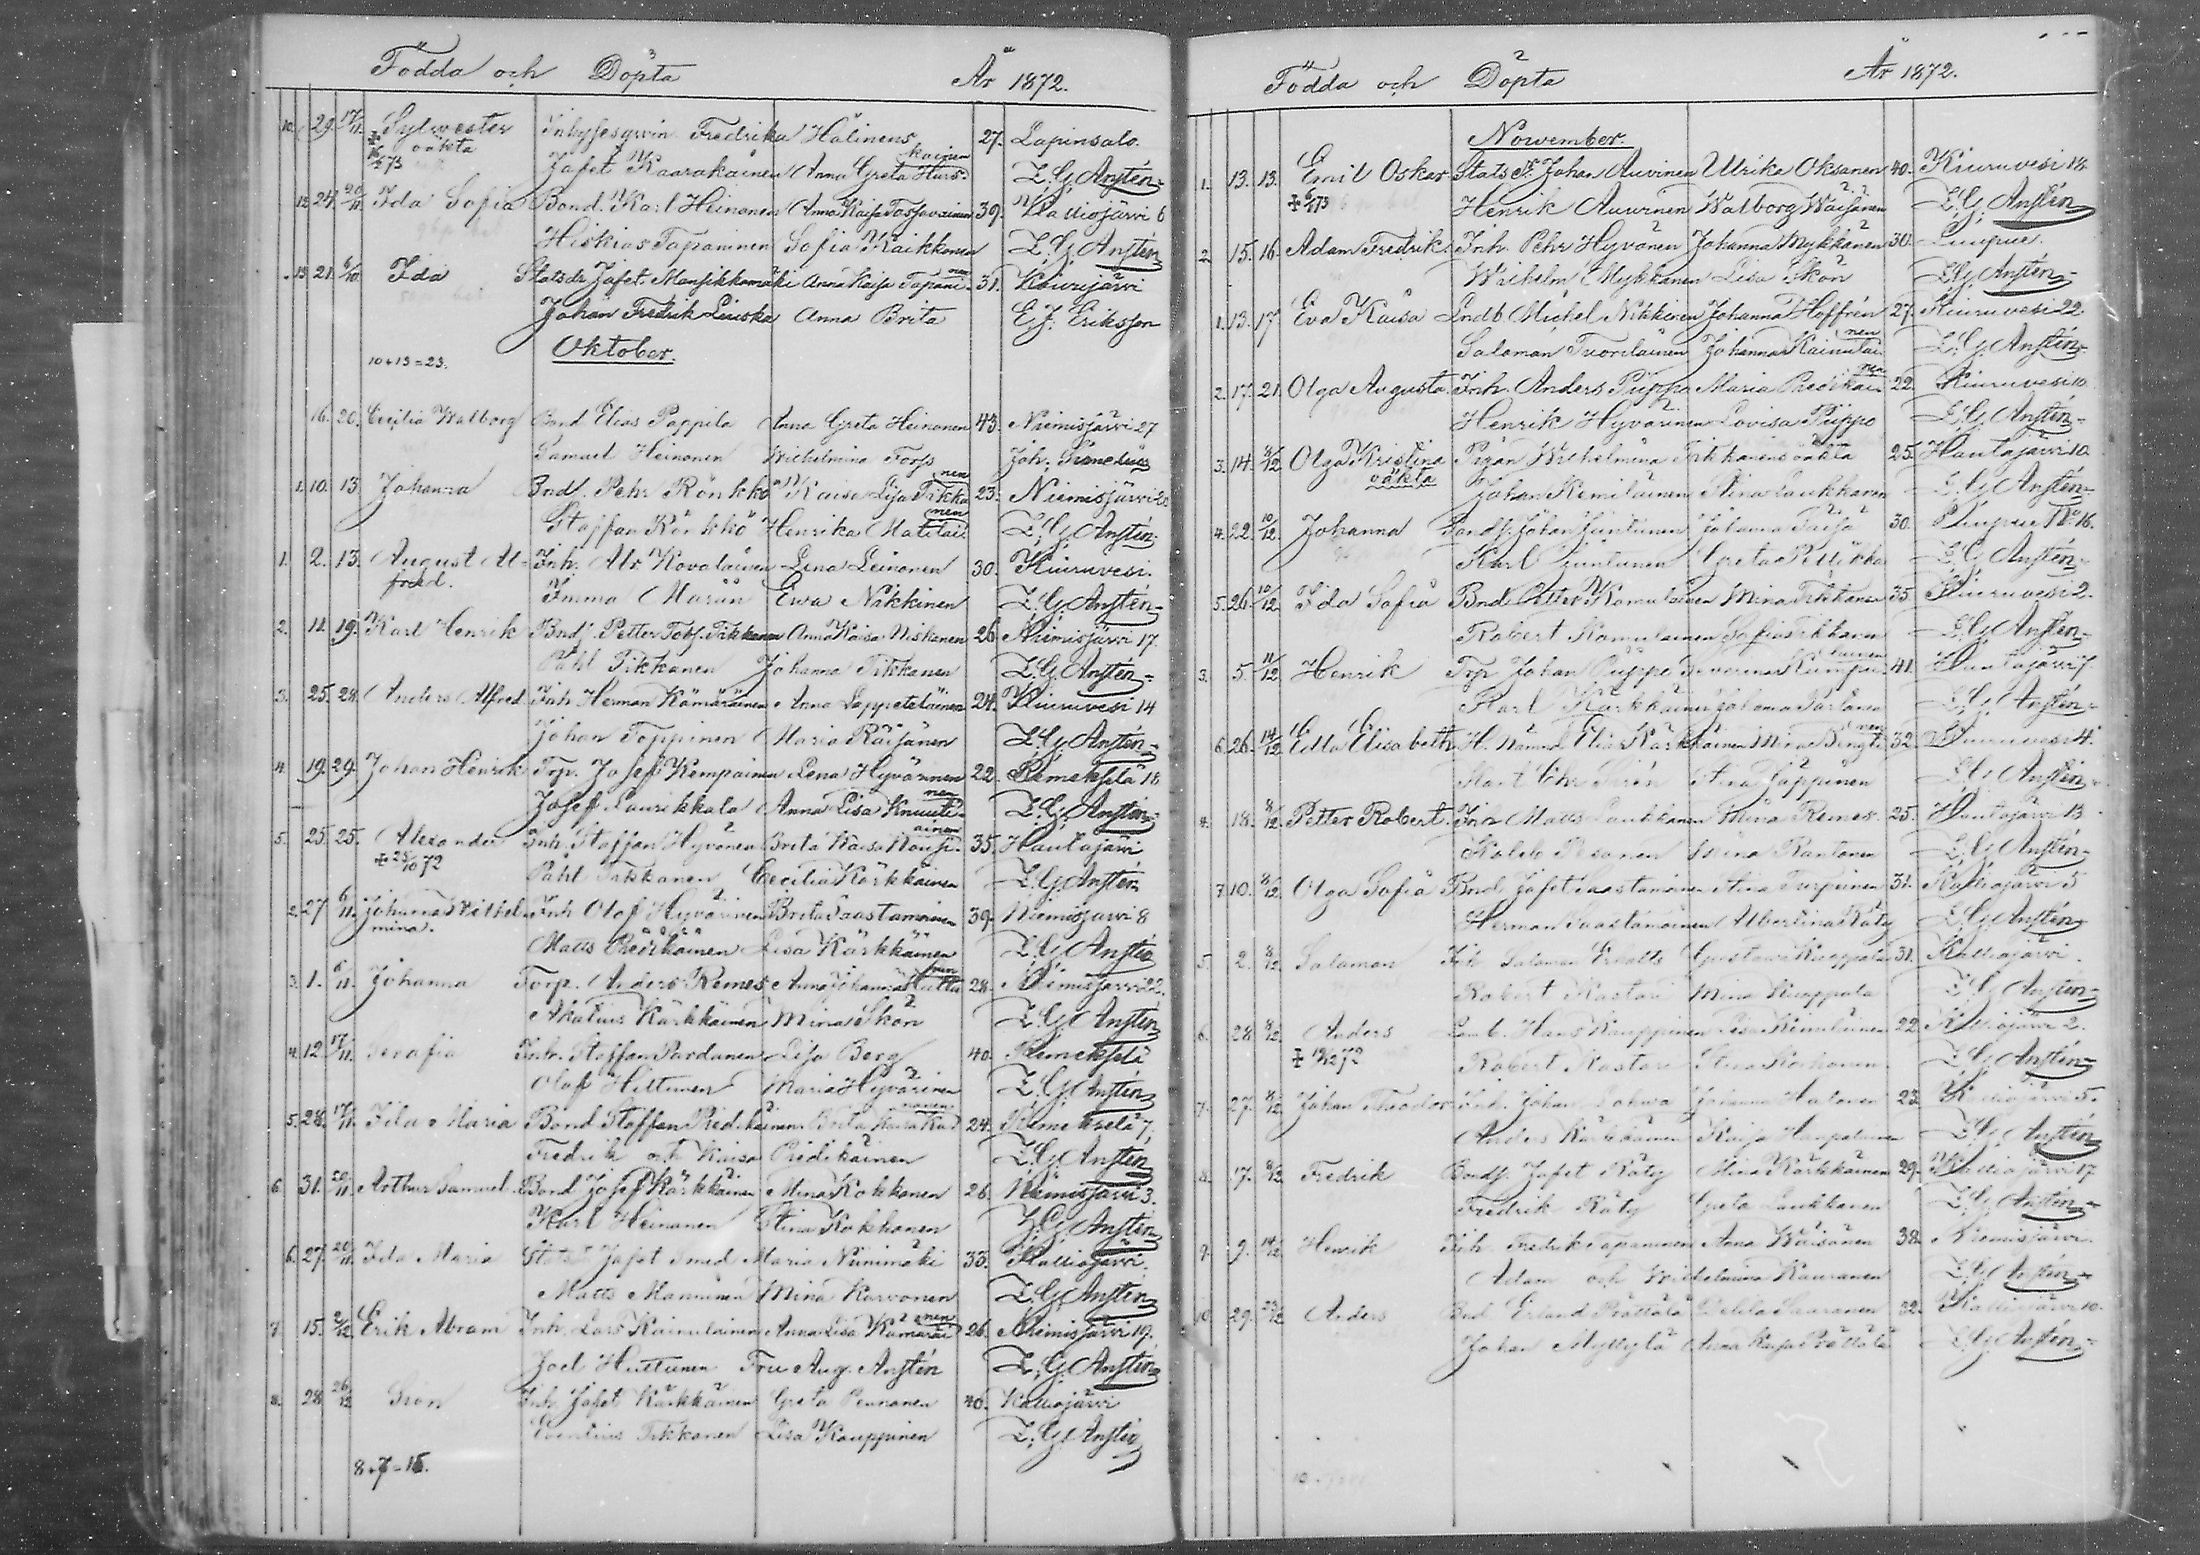 Födda och Döpta År 1872.
10. 29. 17/11 Sylwester Inhysesqwin Fredrika Hälinens 27. Lapinsalo.
oäkta kainen
Jafet Kaarakainen Anna Greta Hurs- L. G. Anstén
12. 24. 20/11 Ida Sofia Bond. Karl Heinonen Anna Kaisa 39. Kalliojärvi 6
Hiskias Tapaninen Sofia Kaikkonen L. G. Anstén
13. 21. 6/10 Ida Statsdr Jafet Mansikkamäki Anna Kaisa Tapani- nen 31. Kiurujärvi
Johan Fredrik Anna Brita E. J. Eriksson
10+13=23. Oktober.
16. 20. Cecilia Walborg Bond Elias Pappila Anna Greta Heinonen 43. Niemisjärvi 27
Samuel Heinonen Wilhelmina Forss Joh.
1. 10. 13 Johanna Bnd. Pehr Rönkkö Kaisa Lisa Tikka- nen 23. Niemisjärvi 20
Staffan Rönkkö Henrika Matilai- nen L. G. Anstén
1. 2. 13. August Al- Inh. Abr Kovalainen Lena Leinonen 30. Kiuruvesi.
fred. Immo Marin Ewa Nikkinen L. G. Anstén
2. 11. 19. Karl Henrik Bndj. Petter Tikkanen Anna Kaisa Niskanen 26. Niemisjärvi 17.
Påhl Tikkanen Johanna Tikkanen L. G. Anstén
3. 25. 28. Anders Alfred Inh Herman Kämäräinen Anna Lappeteläinen 24. Kiuruvesi 14
Johan Toppinen Maria Räisänen L. G. Anstén
4. 19. 29. Johan Henrik Torp. Josef Kempainen Lena Hyvärinen 22. Remekselä 18
Josef Laurikkala Anna Lisa Knuuti- nen L. G. Anstén
5. 25. 25. Alexander Inh. Staffan Hyvönen Brita Kaisa ainen 35. Hautajärvi
+ 25/10 72 Påhl Tikkanen Cecilia Kärkkäinen L. G. Anstén
2. 27. 6/11 Johanna Wilhel- Inh Olof Hyvärinen Brita Saastamoinen 39. Niemisjärvi 8
mina. Matts Predikainen Lisa Kärkkäinen L. G. Anstén
3. 1. 6/11. Johanna Torp. Anders Remes Anna Johanna nen 28. Niemisjärvi 22.
Akatius Kärkkäinen Mina Skön L. G. Anstén
4. 12. 17/11. Serafia Inh. Staffan Pardanen Lisa Berg 40. Remekselä
Olof Hiltunen Maria Hyvärinen L. G. Anstén
5. 28. 17/11. Ida Maria Bond Staffan Predikainen Brita Kaisa 24. Remekselä 7,
Fredrik och Kaisa Predikäinen L. G. Anstén
6. 31. 20/11. Arthur Samuel. Bond Josef Kärkkäinen Mina Kokkonen 26. Niemisjärvi 3.
Karl Heinonen Stina Kokkonen L. G. Anstén
6. 27. 20/11. Ida Maria Jafet Smed Maria Niinimäki 33. Kalliojärvi.
Matts Manninen Mina Korvonen L. G. Anstén
7. 15. 2/12 Erik Abram Inh. Lars Kainulainen Anna Lisa Kämäräi- nen 26. Niemisjärvi 19.
Joel Huttunen Fru Aug. Anstén L. G. Anstén
8. 28. 26/12 Inh. Jafet Kärkkäinen Greta Pennanen 40. Kalliojärvi
Tikkanen Lisa Kauppinen L. G. Anstén
8+7=15.
Födda och Döpta År 1872.
Nowember.
1. 13. 13. Emil Oskar Stats dr. Johan Auvinen Ulrika Oksanen 40. Kiuruvesi 18.
Henrik Auvinen Walborg Waisänen L. G. Anstén
2. 15. 16. Adam Fredrik Inh. Pehr Hyvönen Johanna Mykkänen 30. Luupue.
Wilhelm Mykkänen Lisa Skön L. G. Anstén
1. 13. 17 Eva Kaisa Landb. Michel Nikkinen Johanna Hoffrén 27. Kiuruvesi 22.
Salomon Tuorilainen Johanna Kainulai- nen L. G. Anstén
2. 17. 21. Olga Augusta Inh. Anders Piippo Maria Predikai- nen 22. Kiuruvesi 10
Henrik Hyvärinen Lovisa Piippo L. G. Anstén
3. 14. 8/12 Olga Kristina Pigan Wilhelmina Tikkanens oäkta 25. Hautajärvi 10.
oäkta Johan Remilainen Stina Laukkanen L. G. Anstén
4. 22. 10/12 Johanna Johan Juntunen Johanna 30. Luupue No 16.
Karl Juntunen Greta L. G. Anstén
5. 26. 10/12 Ida Sofia Bnd. Petter Komulainen Mina Tikkanen 35. Kiuruvesi 2.
Robert Komulainen Sofia Tikkanen L. G. Anstén
3. 5. 11/12 Henrik Torp Johan Piippo Rumpu- lainen 41. Hautajärvi 7
Karl Kärkkäinen Johanna L. G. Anstén
6. 26. 14/12 Edla Elisabeth H. Nämnd. Elias Kärkkäinen Mina 32. Kiuruvesi 4.
Karl Chr Sirén Stina Jäppinen L. G. Anstén
4. 18. 8/12 Petter Robert. Inh Matts Laukkanen Stina Remes. 25. Hautajärvi 13.
Kaleb Pesonen Stina Rantonen L. G. Anstén
7. 10. 8/12 Olga Sofia Bnd. Jafet Saastamoinen Stina Turpeinen 31. Kalliojärvi 5
Herman Saastamoinen Albertina Räty L. G. Anstén
5. 2. 8/12 Salomon Inh Salomon Gustava Kuoppala 31. Kalliojärvi.
Robert Kastari Mina Kuoppala L. G. Anstén
6. 28. 8/12 Anders Hans Kauppinen Lisa 22. Kalliojärvi 2.
Robert Kastari Stina Korhonen L. G. Anstén
7. 27. 8/12 Johan Theodor Inh. Johan Johanna Halonen 23. Kalliojärvi 5.
Anders Kärkkäinen Kaisa L. G. Anstén
8. 17. 8/12 Fredrik Bondj. Jafet Räty Stina Kärkkäinen 29. Kalliojärvi 17
Fredrik Räty Greta Laukkanen L. G. Anstén
9. 9. 14/12 Henrik Inh. Fredrik Tapaninen Anna Wäisänen 38. Niemisjärvi.
Adam och Wilhelmina Kauranen L. G. Anstén
10. 29. 23/12 Anders Bnd Erland Prättälä Saaranen 32. Kalliojärvi 10.
Johan Myllylä Anna Kaisa Prättälä L. G. Anstén